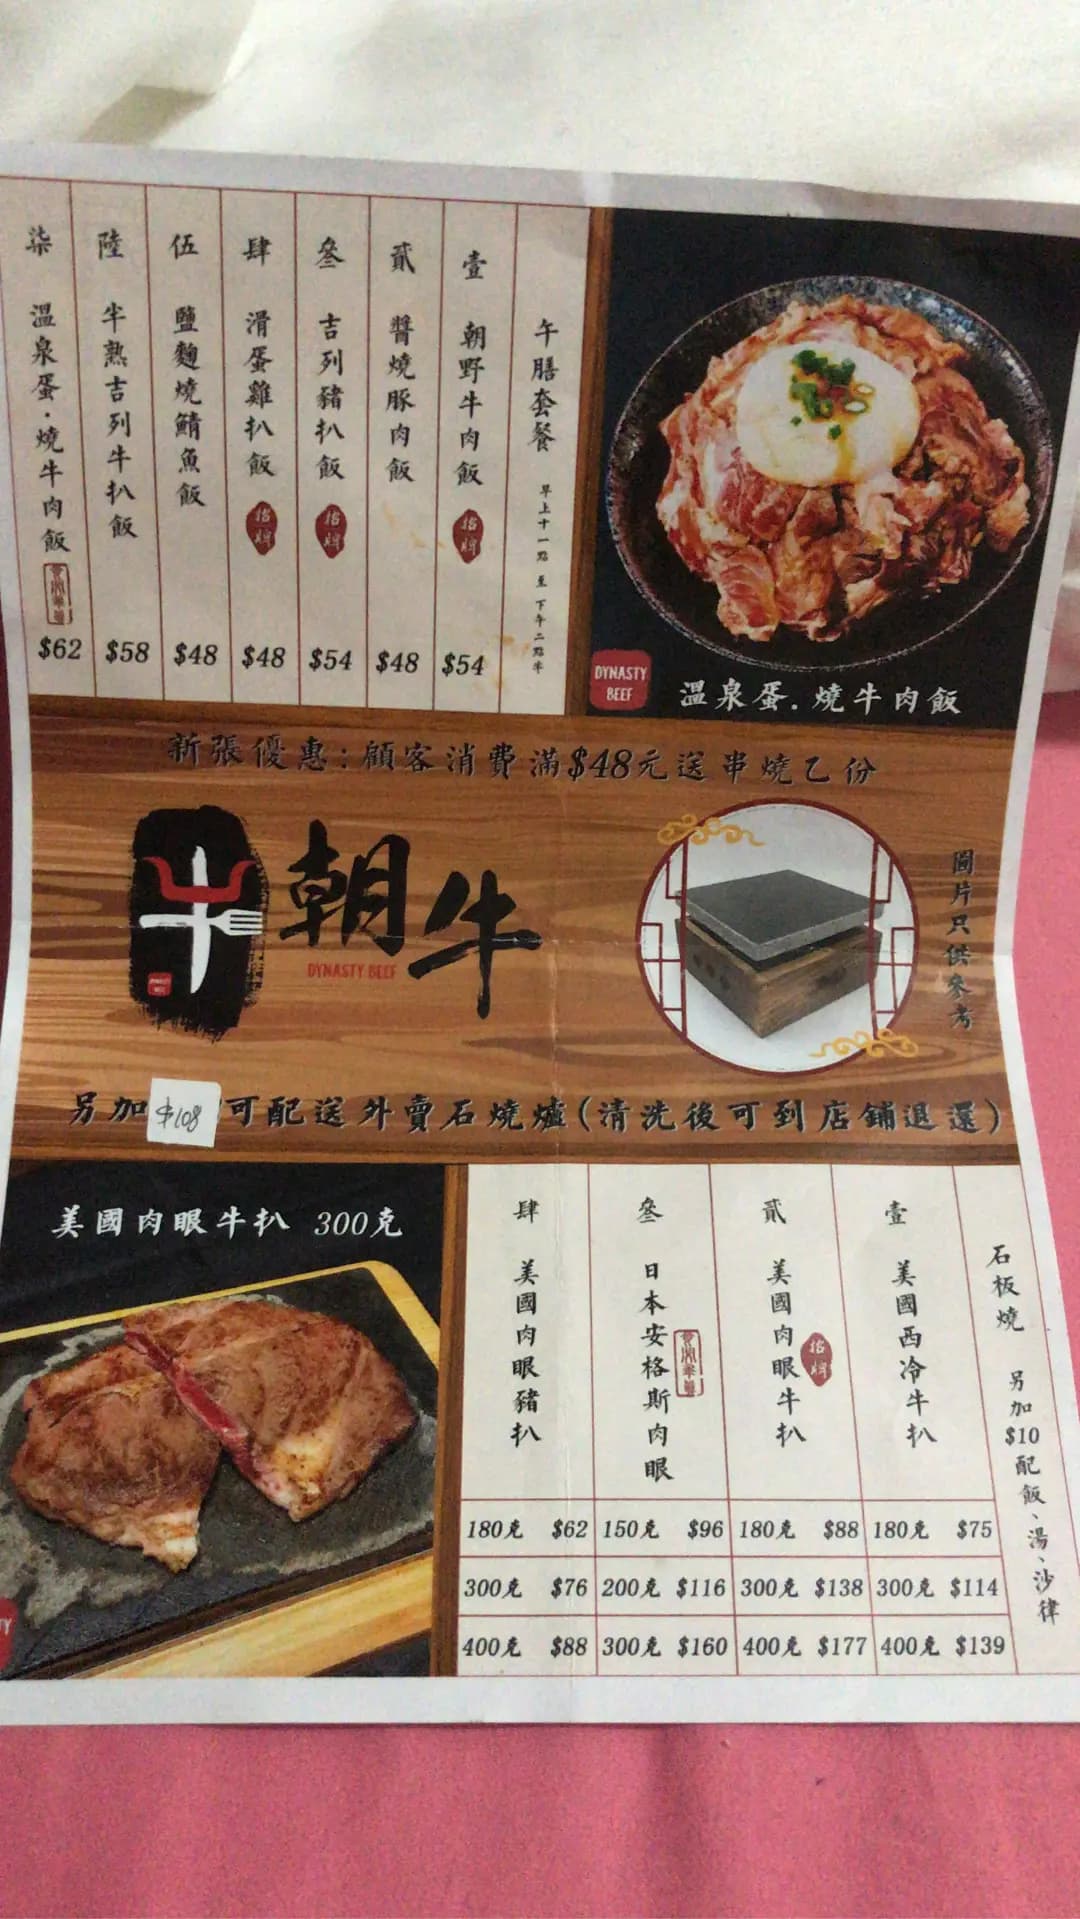 午膳套餐 早上十一點 至 下午二點半
壹 朝野牛肉飯 招牌 $54
貳 醬燒豚肉飯 $48
叄 吉列豬扒飯 招牌 $54
肆 滑蛋雞扒飯 招牌 $48
伍 鹽麴燒鯖魚飯 $48
陸 半熟吉列牛扒飯 $58
柒 溫泉蛋·燒牛肉飯 $62
DYNASTY
BEEF
溫泉蛋.燒牛肉飯
新張優惠:顧客消費滿$48元送串燒乙份
朝牛
DYNASTY BEEF
圖片只供參考
另加$108可配送外賣石燒爐(清洗後可到店鋪退還)
美國肉眼牛扒 300克
石板燒 另加$10配飯、湯、沙律
壹 美國西冷牛扒
180克 $75
300克 $114
400克 $139
貳 美國肉眼牛扒 招牌
180克 $88
300克 $138
400克 $177
叄 日本安格斯肉眼
150克 $96
200克 $116
300克 $160
肆 美國肉眼豬扒
180克 $62
300克 $76
400克 $88